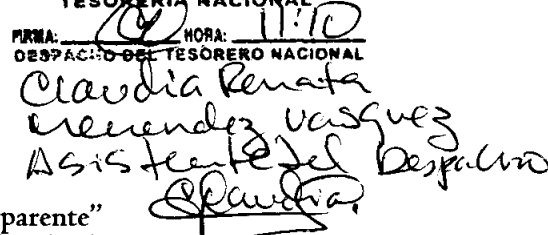 TESORERIA NACIONAL
FIRMA: HORA: 11:10
DESPACHO DEL TESORERO NACIONAL
Claudia Renata
Menendez Vasquez
Asistente del Despacho
Claudia
parente”